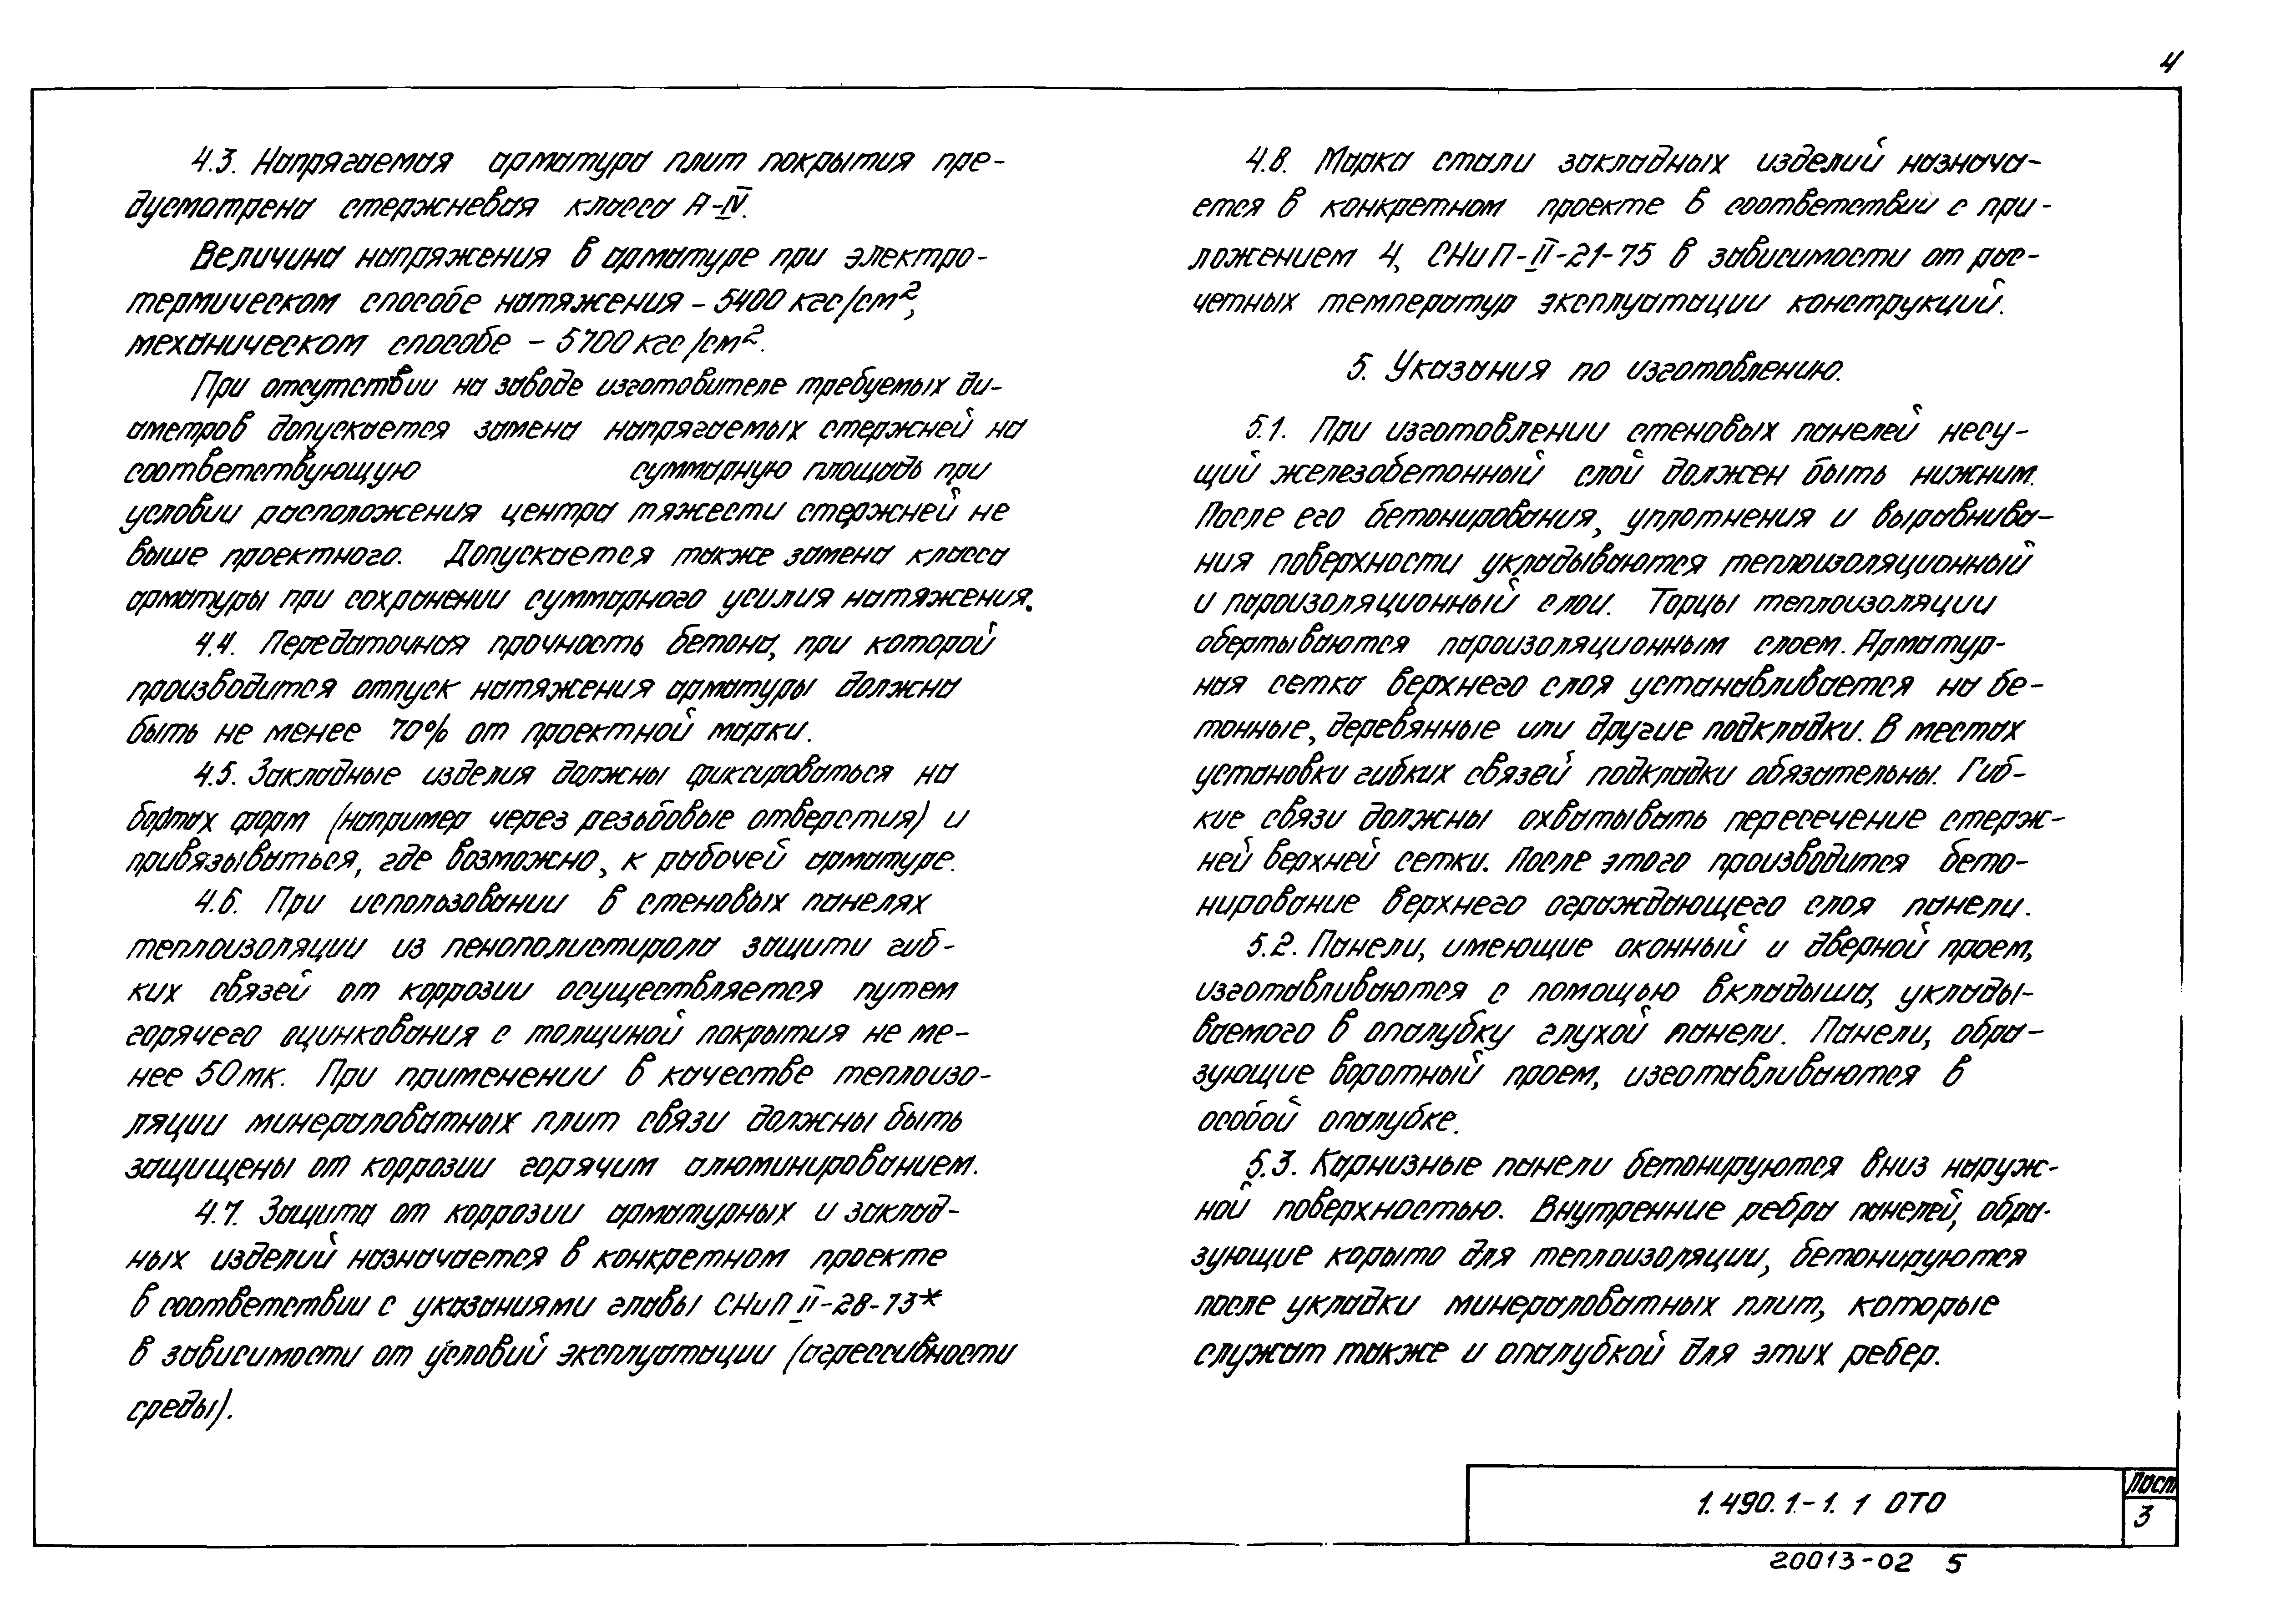 4
4.3. Напрягаемая арматура плит покрытия пре-
дусмотрена стержневая класса А-IV.
Величина напряжения в арматуре при электро-
термическом способе натяжения - 5400 кгс/см²,
механическом способе - 5700 кгс/см².
При отсутствии на заводе изготовителе требуемых ди-
аметров допускается замена напрягаемых стержней на
соответствующую суммарную площадь при
условии расположения центра тяжести стержней не
выше проектного. Допускается также замена класса
арматуры при сохранении суммарного усилия натяжения.
4.4. Передаточная прочность бетона, при которой
производится отпуск натяжения арматуры должна
быть не менее 70% от проектной марки.
4.5. Закладные изделия должны фиксироваться на
бортах форм (например через резьбовые отверстия) и
привязываться, где возможно, к рабочей арматуре.
4.6. При использовании в стеновых панелях
теплоизоляции из пенополистирола защити гиб-
ких связей от коррозии осуществляется путем
горячего оцинкования с толщиной покрытия не ме-
нее 50мк. При применении в качестве теплоизо-
ляции минераловатных плит связи должны быть
защищены от коррозии горячим алюминированием.
4.7. Защита от коррозии арматурных и заклад-
ных изделий назначается в конкретном проекте
в соответствии с указаниями главы СНиП II-28-73*
в зависимости от условий эксплуатации (агрессивности
среды).
4.8. Марка стали закладных изделий назнача-
ется в конкретном проекте в соответствии с при-
ложением 4, СНиП-II-21-75 в зависимости от рас-
четных температур эксплуатации конструкций.
5. Указания по изготовлению.
5.1. При изготовлении стеновых панелей несу-
щий железобетонный слой должен быть нижним.
После его бетонирования, уплотнения и выравнива-
ния поверхности укладываются теплоизоляционный
и пароизоляционный слои. Торцы теплоизоляции
обертываются пароизоляционным слоем. Арматур-
ная сетка верхнего слоя устанавливается на бе-
тонные, деревянные или другие подкладки. В местах
установки гибких связей подкладки обязательны. Гиб-
кие связи должны охватывать пересечение стерж-
ней верхней сетки. После этого производится бето-
нирование верхнего ограждающего слоя панели.
5.2. Панели, имеющие оконный и дверной проем,
изготавливаются с помощью вкладыша, уклады-
ваемого в опалубку глухой панели. Панели, обра-
зующие воротный проем, изготавливаются в
особой опалубке.
5.3. Карнизные панели бетонируются вниз наруж-
ной поверхностью. Внутренние ребра панелей, обра-
зующие корыто для теплоизоляции, бетонируются
после укладки минераловатных плит, которые
служат также и опалубкой для этих ребер.
1.490.1-1. 1 ОТО
Лист
3
20013-02 5